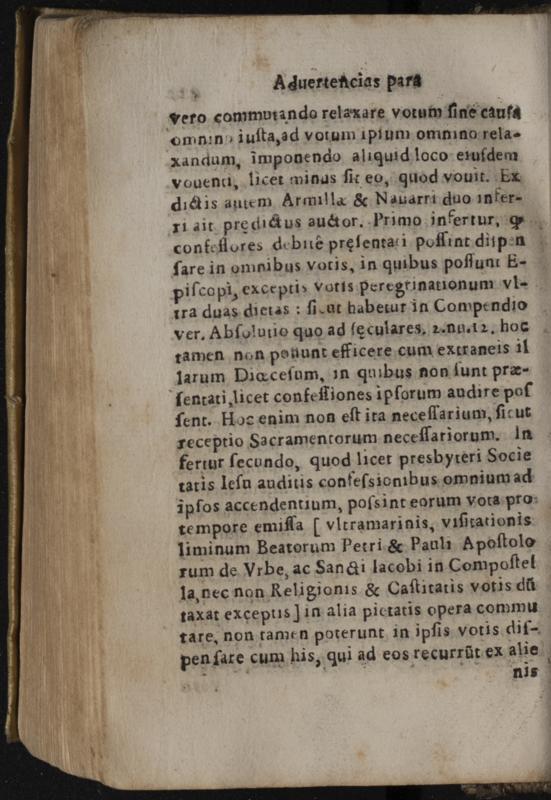 Aduertencias para
vero commutando relaxare votum sine causa
omnino iusta, ad votum ipsum omnino rela-
xandum, imponendo aliquid loco eiusdem
vouenti, licet minus sit eo, quod vouit. Ex
dictis autem Armillæ & Nauarri duo infer-
ri ait prędictus auctor. Primo infertur, ꝙ
confessores debitè pręsentati possint dispen
sare in omnibus votis, in quibus possunt E-
piscopi, exceptis votis peregrinationum vl-
tra duas dietas: sicut habetur in Compendio
ver. Absolutio quo ad sęculares. 2.nu.12. hoc
tamen non possunt efficere cum extraneis il
larum Diœcesum, in quibus non sunt præ-
sentati, licet confessiones ipsorum audire pos
sent. Hoc enim non est ita necessarium, sicut
receptio Sacramentorum necessariorum. In
fertur secundo, quod licet presbyteri Socie
tatis Iesu auditis confessionibus omnium ad
ipsos accendentium, possint eorum vota pro
tempore emissa [ vltramarinis, visitationis
liminum Beatorum Petri & Pauli Apostolo
rum de Vrbe, ac Sancti Iacobi in Compostel
la, nec non Religionis & Castitatis votis dũ
taxat exceptis] in alia pietatis opera commu
tare, non tamen poterunt in ipsis votis dis-
pensare cum his, qui ad eos recurrũt ex alie
nis